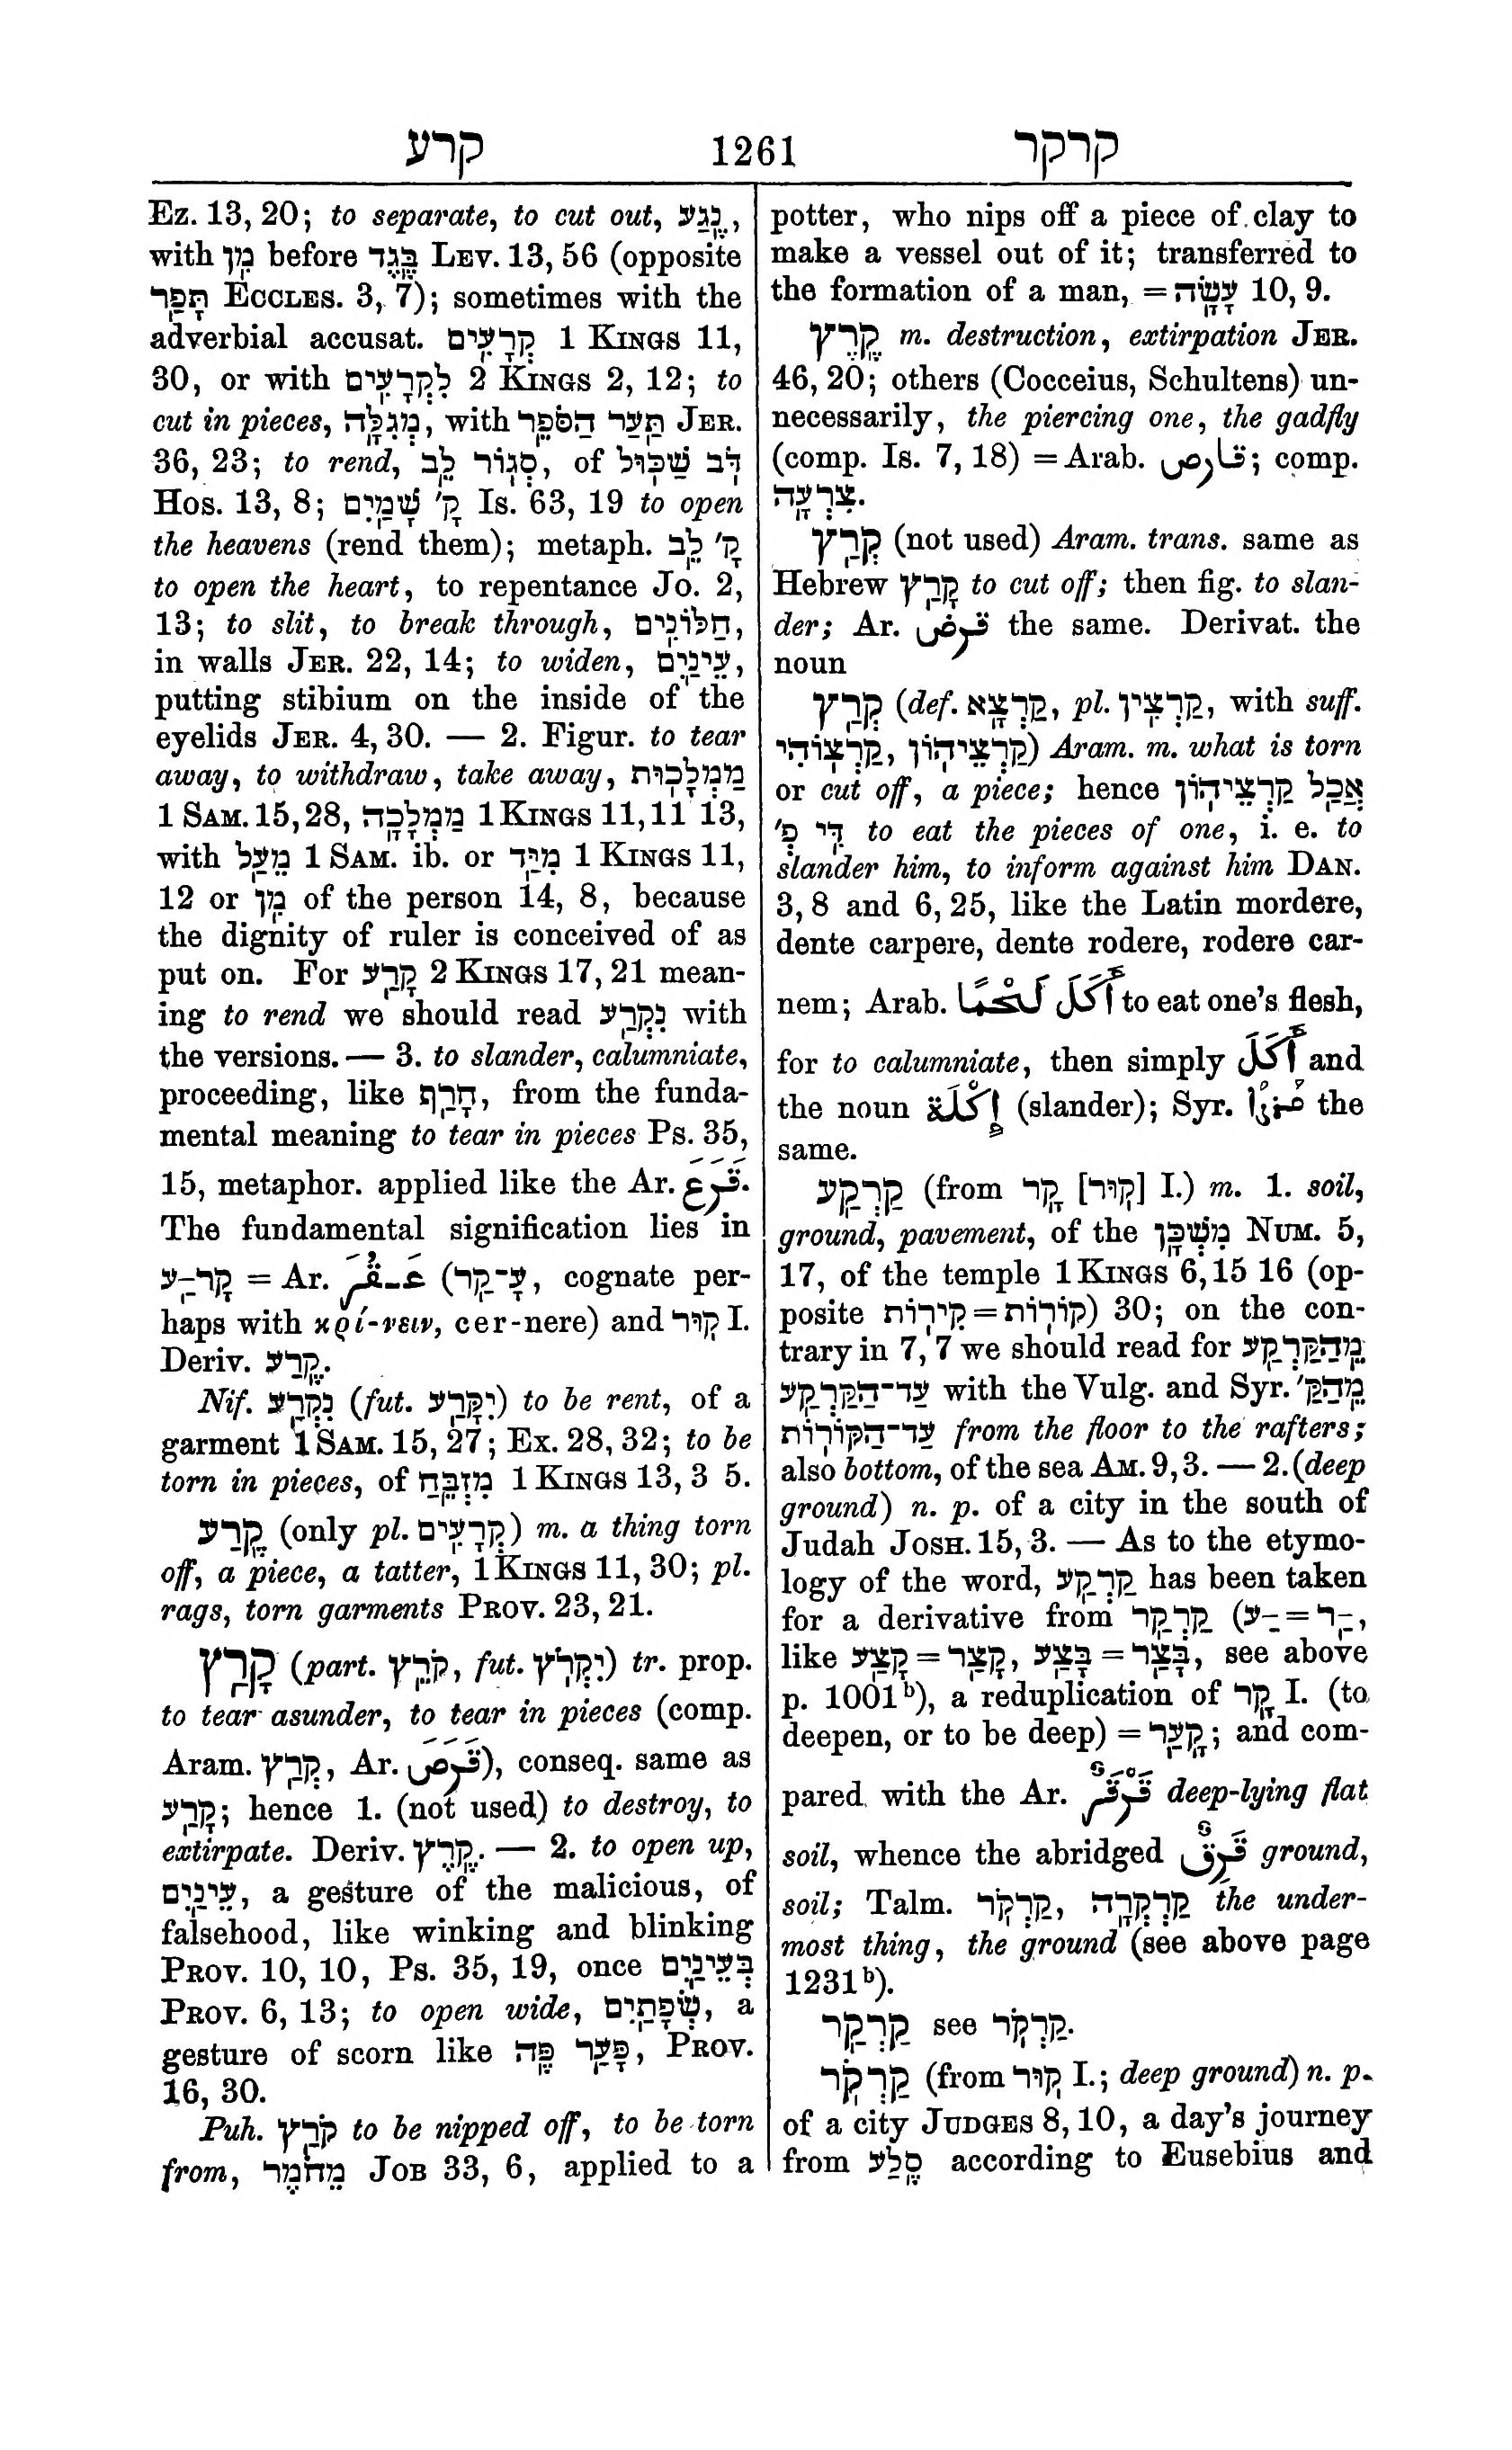 קרע 1261 קרקר
Ez. 13, 20; to separate, to cut out, נֶגַע,
with מִן before בֶּגֶד Lev. 13, 56 (opposite
תָּפַר Eccles. 3, 7); sometimes with the
adverbial accusat. קְרָעִים 1 Kings 11,
30, or with לִקְרָעִים 2 Kings 2, 12; to
cut in pieces, מְגִלָּה, with תַּעַר הַסֹּפֵר Jer.
36, 23; to rend, סְגוֹר לֵב, of דֹּב שַׁכּוּל
Hos. 13, 8; קָ' שָׁמַיִם Is. 63, 19 to open
the heavens (rend them); metaph. קָ' לֵב
to open the heart, to repentance Jo. 2,
13; to slit, to break through, חַלּוֹנִים,
in walls Jer. 22, 14; to widen, עֵינַיִם,
putting stibium on the inside of the
eyelids Jer. 4, 30. — 2. Figur. to tear
away, to withdraw, take away, מַמְלָכוּת
1 Sam. 15, 28, מַמְלָכָה 1 Kings 11, 11 13,
with מֵעַל 1 Sam. ib. or מִיַּד 1 Kings 11,
12 or מִן of the person 14, 8, because
the dignity of ruler is conceived of as
put on. For קָרַע 2 Kings 17, 21 mean-
ing to rend we should read נִקְרַע with
the versions. — 3. to slander, calumniate,
proceeding, like חָרַף, from the funda-
mental meaning to tear in pieces Ps. 35,
15, metaphor. applied like the Ar. قَرَعَ.
The fundamental signification lies in
קָר־ַע = Ar. عَـقُرَ (עָ־קַר, cognate per-
haps with κρί-νειν, cer-nere) and קוּר I.
Deriv. קֶרַע.
Nif. נִקְרַע (fut. יִקָּרַע) to be rent, of a
garment 1 Sam. 15, 27; Ex. 28, 32; to be
torn in pieces, of מִזְבֵּחַ 1 Kings 13, 3 5.
קֶרַע (only pl. קְרָעִים) m. a thing torn
off, a piece, a tatter, 1 Kings 11, 30; pl.
rags, torn garments Prov. 23, 21.
קָרַץ (part. קֹרֵץ, fut. יִקְרֹץ) tr. prop.
to tear asunder, to tear in pieces (comp.
Aram. קְרַץ, Ar. قَرَصَ), conseq. same as
קָרַע; hence 1. (not used) to destroy, to
extirpate. Deriv. קֶרֶץ. — 2. to open up,
עֵינַיִם, a gesture of the malicious, of
falsehood, like winking and blinking
Prov. 10, 10, Ps. 35, 19, once בְּעֵינַיִם
Prov. 6, 13; to open wide, שְׂפָתַיִם, a
gesture of scorn like פָּעַר פֶּה, Prov.
16, 30.
Puh. קֹרַץ to be nipped off, to be torn
from, מֵחֹמֶר Job 33, 6, applied to a
potter, who nips off a piece of clay to
make a vessel out of it; transferred to
the formation of a man, = עָשָׂה 10, 9.
קֶרֶץ m. destruction, extirpation Jer.
46, 20; others (Cocceius, Schultens) un-
necessarily, the piercing one, the gadfly
(comp. Is. 7, 18) = Arab. قارص; comp.
צִרְעָה.
קְרַץ (not used) Aram. trans. same as
Hebrew קָרַץ to cut off; then fig. to slan-
der; Ar. قرض the same. Derivat. the
noun
קְרַץ (def. קַרְצָא, pl. קַרְצִין, with suff.
קַרְצוֹהִי, קַרְצֵיהוֹן) Aram. m. what is torn
or cut off, a piece; hence אֲכַל קַרְצֵיהוֹן
דִּי פְ' to eat the pieces of one, i. e. to
slander him, to inform against him Dan.
3, 8 and 6, 25, like the Latin mordere,
dente carpere, dente rodere, rodere car-
nem; Arab. أَكَلَ لَحْمًا to eat one's flesh,
for to calumniate, then simply أَكَلَ and
the noun إِكْلَة (slander); Syr. the
same.
קַרְקַע (from קָר [קוּר] I.) m. 1. soil,
ground, pavement, of the מִשְׁכָּן Num. 5,
17, of the temple 1 Kings 6, 15 16 (op-
posite קִירוֹת = קוֹרוֹת) 30; on the con-
trary in 7, 7 we should read for מֵהַקַּרְקַע
עַד־הַקַּרְקַע with the Vulg. and Syr. מֵהַקַּ'
עַד־הַקּוֹרוֹת from the floor to the rafters;
also bottom, of the sea Am. 9, 3. — 2. (deep
ground) n. p. of a city in the south of
Judah Josh. 15, 3. — As to the etymo-
logy of the word, קַרְקַע has been taken
for a derivative from קַרְקַר (־ַע = ־ַר,
like קָצַע = קָצַר, בָּצַע = בָּצַר, see above
p. 1001ᵇ), a reduplication of קָר I. (to
deepen, or to be deep) = קָעַר; and com-
pared with the Ar. قَرْقَرٌ deep-lying flat
soil, whence the abridged قَرِقٌ ground,
soil; Talm. קַרְקֹר, קַרְקָרָה the under-
most thing, the ground (see above page
1231ᵇ).
קַרְקַר see קַרְקֹר.
קַרְקֹר (from קוּר I.; deep ground) n. p.
of a city Judges 8, 10, a day's journey
from סֶלַע according to Eusebius and